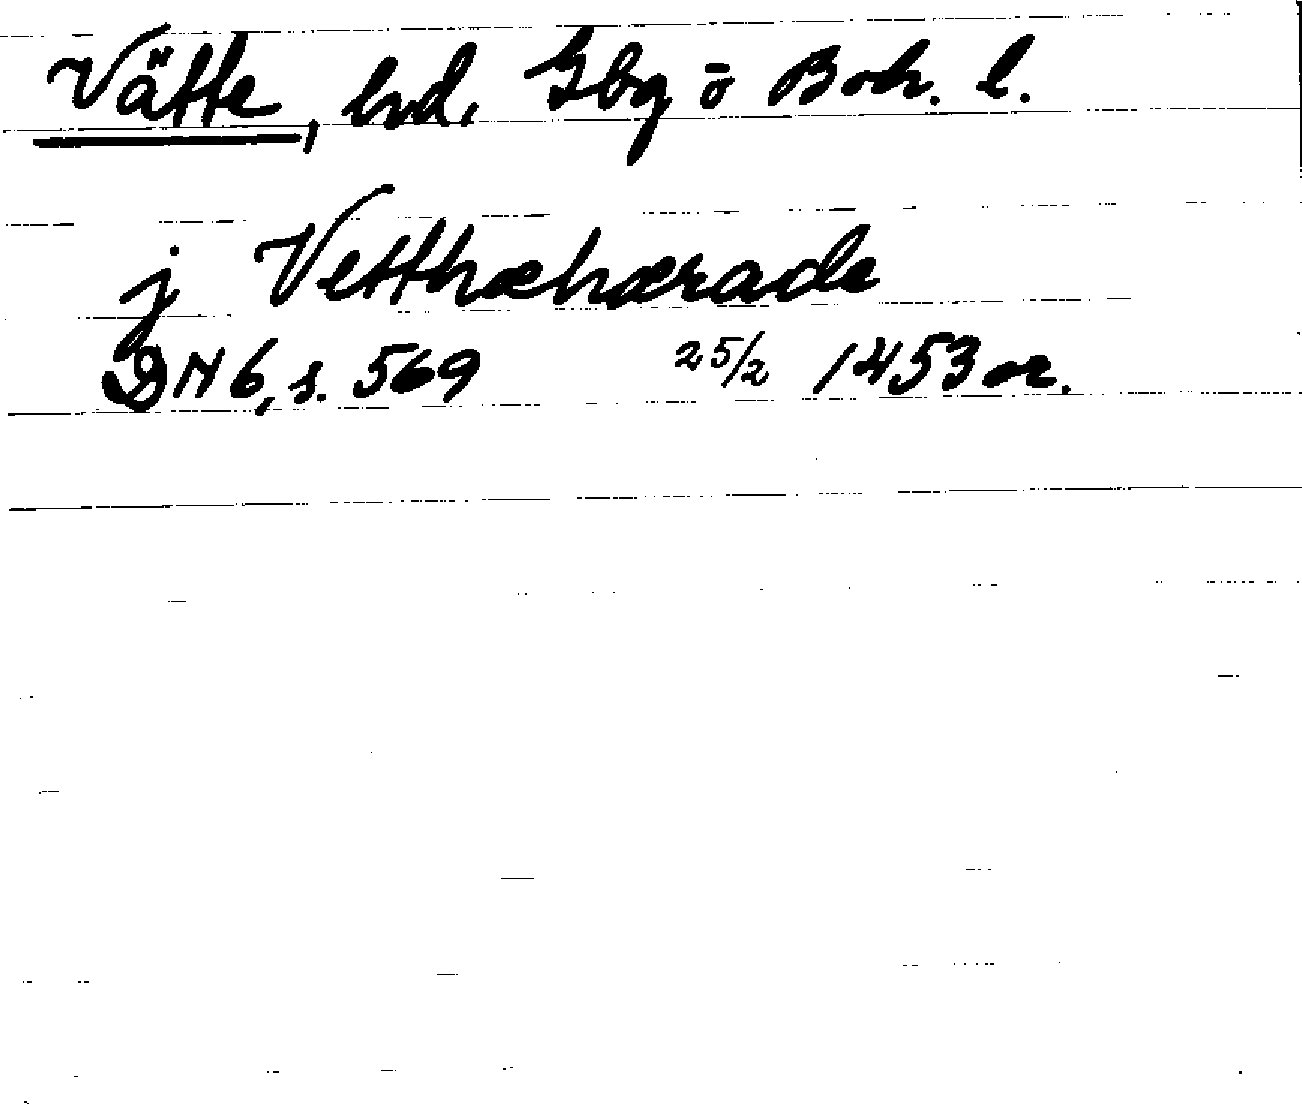 Vätte, hd, Gbg o Boh. l.
j Vetthæhærade
DN 6, s. 569 25/2 1453 or.